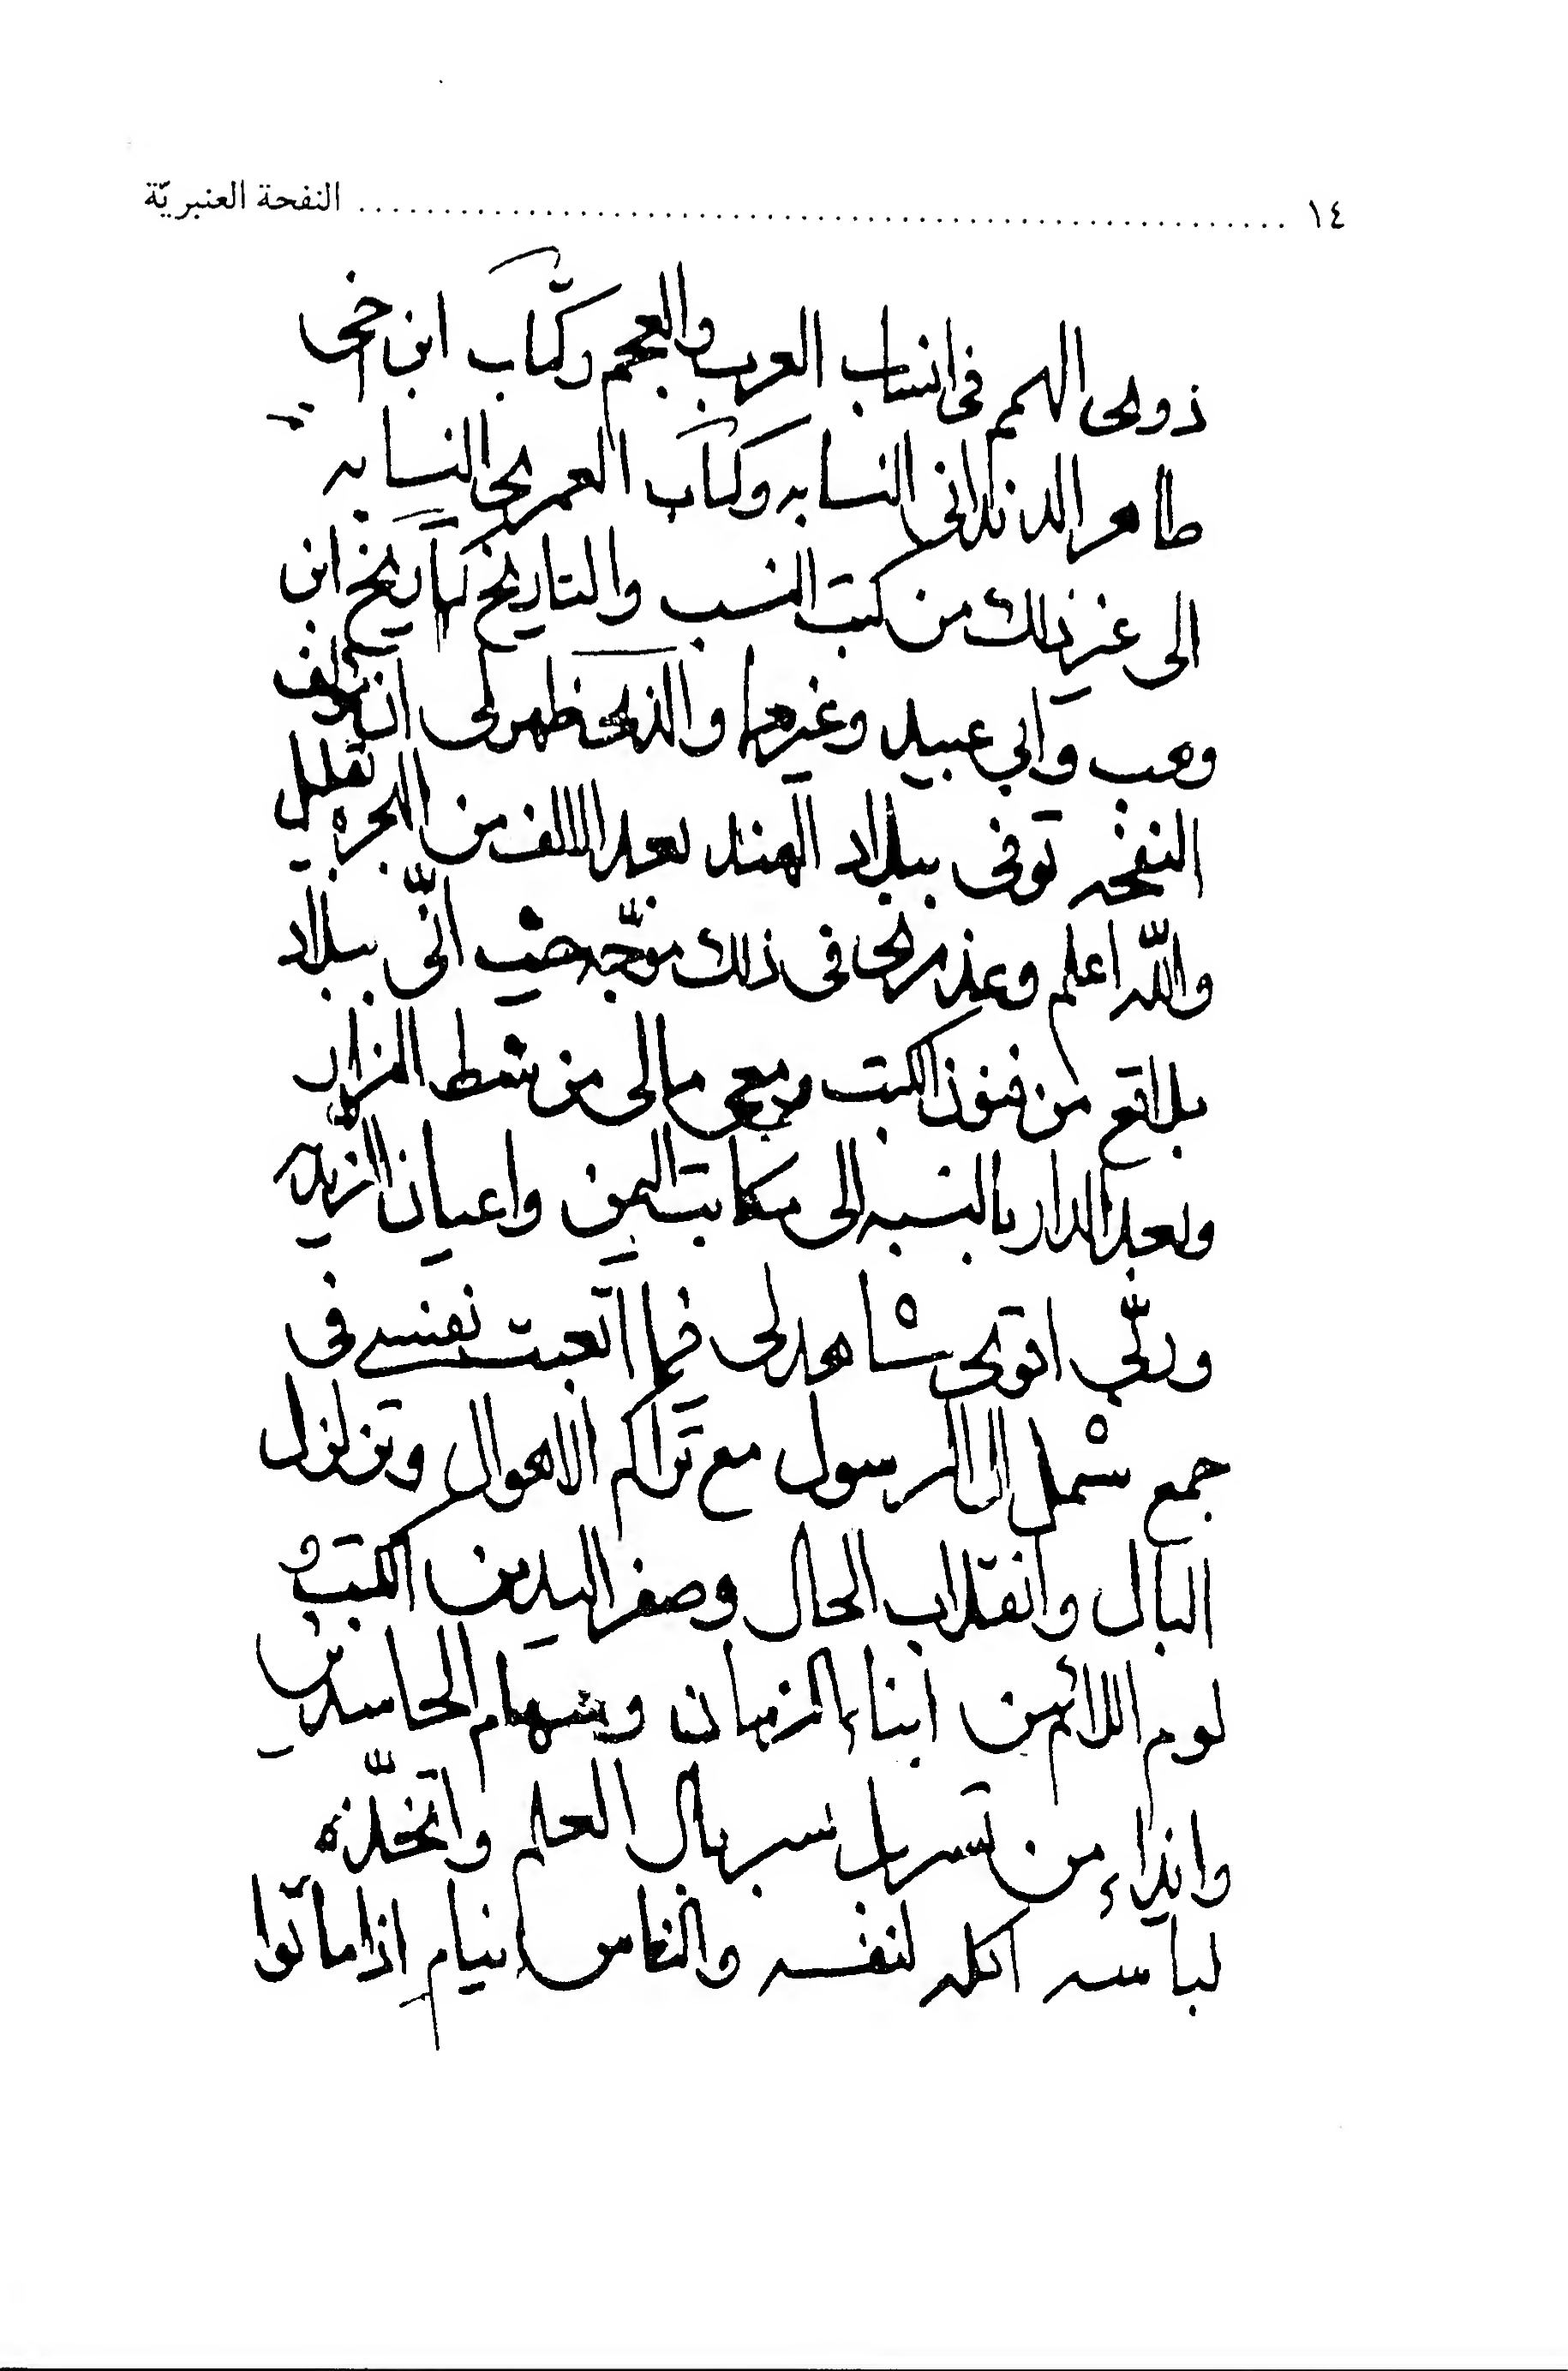 ١٤ ........................................ النفحة العنبريّة
ذوى الهمم فى انساب العرب والعجم وكتاب ابن اخى
طاهر الدندانى النسابه وكتاب العمرى النسابه
الى غير ذلك من كتب النسب والتاريخ كتاريخ ابن
وهب وابي عبيد وغيرهما والذى ظهر لى ان مؤلف
النفحه توفى ببلاد الهند بعد الالف من الهجره بقليل
والله اعلم وعذرى فى ذلك متوجّه حيث انّى ببلاد
بلاقع من فنون الكتب ومعى مالى من شط المزار
وبعد الدار بالنسبه الى مكاتب اليمن واعيان الزيديه
وربّي اقوى شاهد لى فيما اتعبت نفسى فى
جمع شمل ال الرسول مع تراكم الاهوال وتزلزل
البال وانقلاب الحال وصفر اليد من الكتب و
لوم اللائمين ابناء الزمان وسهام الحاسدين
وايذاء من تسربل سربال العلم واتخذه
لباسه اكله لنفسه والناس نيام اذا ماتوا